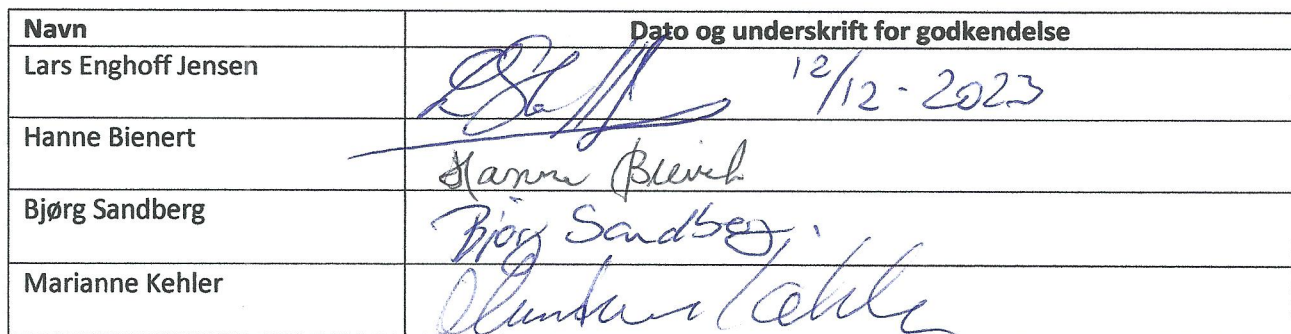 Navn Dato og underskrift for godkendelse
Lars Enghoff Jensen 12/12-2023
Hanne Bienert
Hanne
Bjørg Sandberg
Bjørg Sandberg
Marianne Kehler